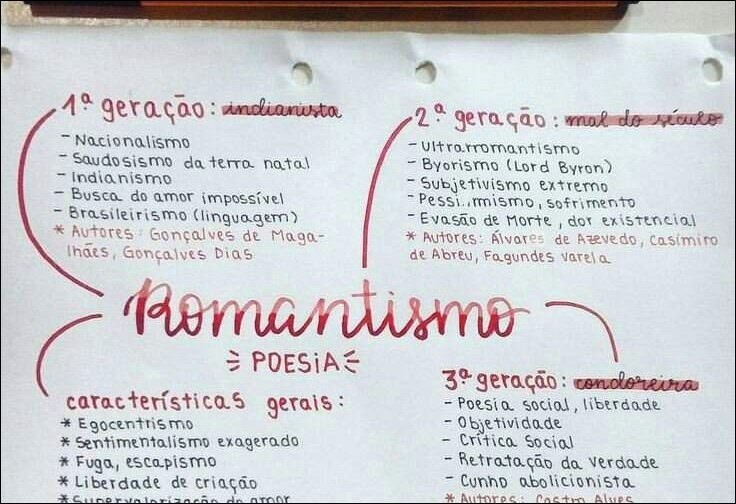 1ª geração: indianista
- Nacionalismo
- Saudosismo da terra natal
- Indianismo
- Busca do amor impossível
- Brasileirismo (linguagem)
* Autores: Gonçalves de Maga-
lhães, Gonçalves Dias
2ª geração: mal do século
- Ultrarromantismo
- Byorismo (Lord Byron)
- Subjetivismo extremo
- Pessi..mismo, sofrimento
- Evasão de Morte, dor existencial
* Autores: Álvares de Azevedo, Casimiro
de Abreu, Fagundes Varela
Romantismo
POESIA
características gerais:
* Egocentrismo
* Sentimentalismo exagerado
* Fuga, escapismo
* Liberdade de criação
* Supervalorização do amor
3ª geração: condoreira
- Poesia social, liberdade
- Objetividade
- Crítica Social
- Retratação da Verdade
- Cunho abolicionista
* Autores: Castro Alves